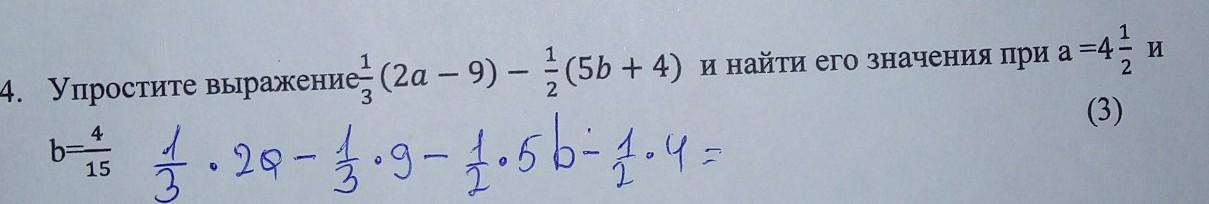 4. Упростите выражение 1/3 (2a − 9) − 1/2 (5b + 4) и найти его значения при a =4 1/2 и
b= 4/15 (3)
1/3 · 2a − 1/3 · 9 − 1/2 · 5b − 1/2 · 4 =